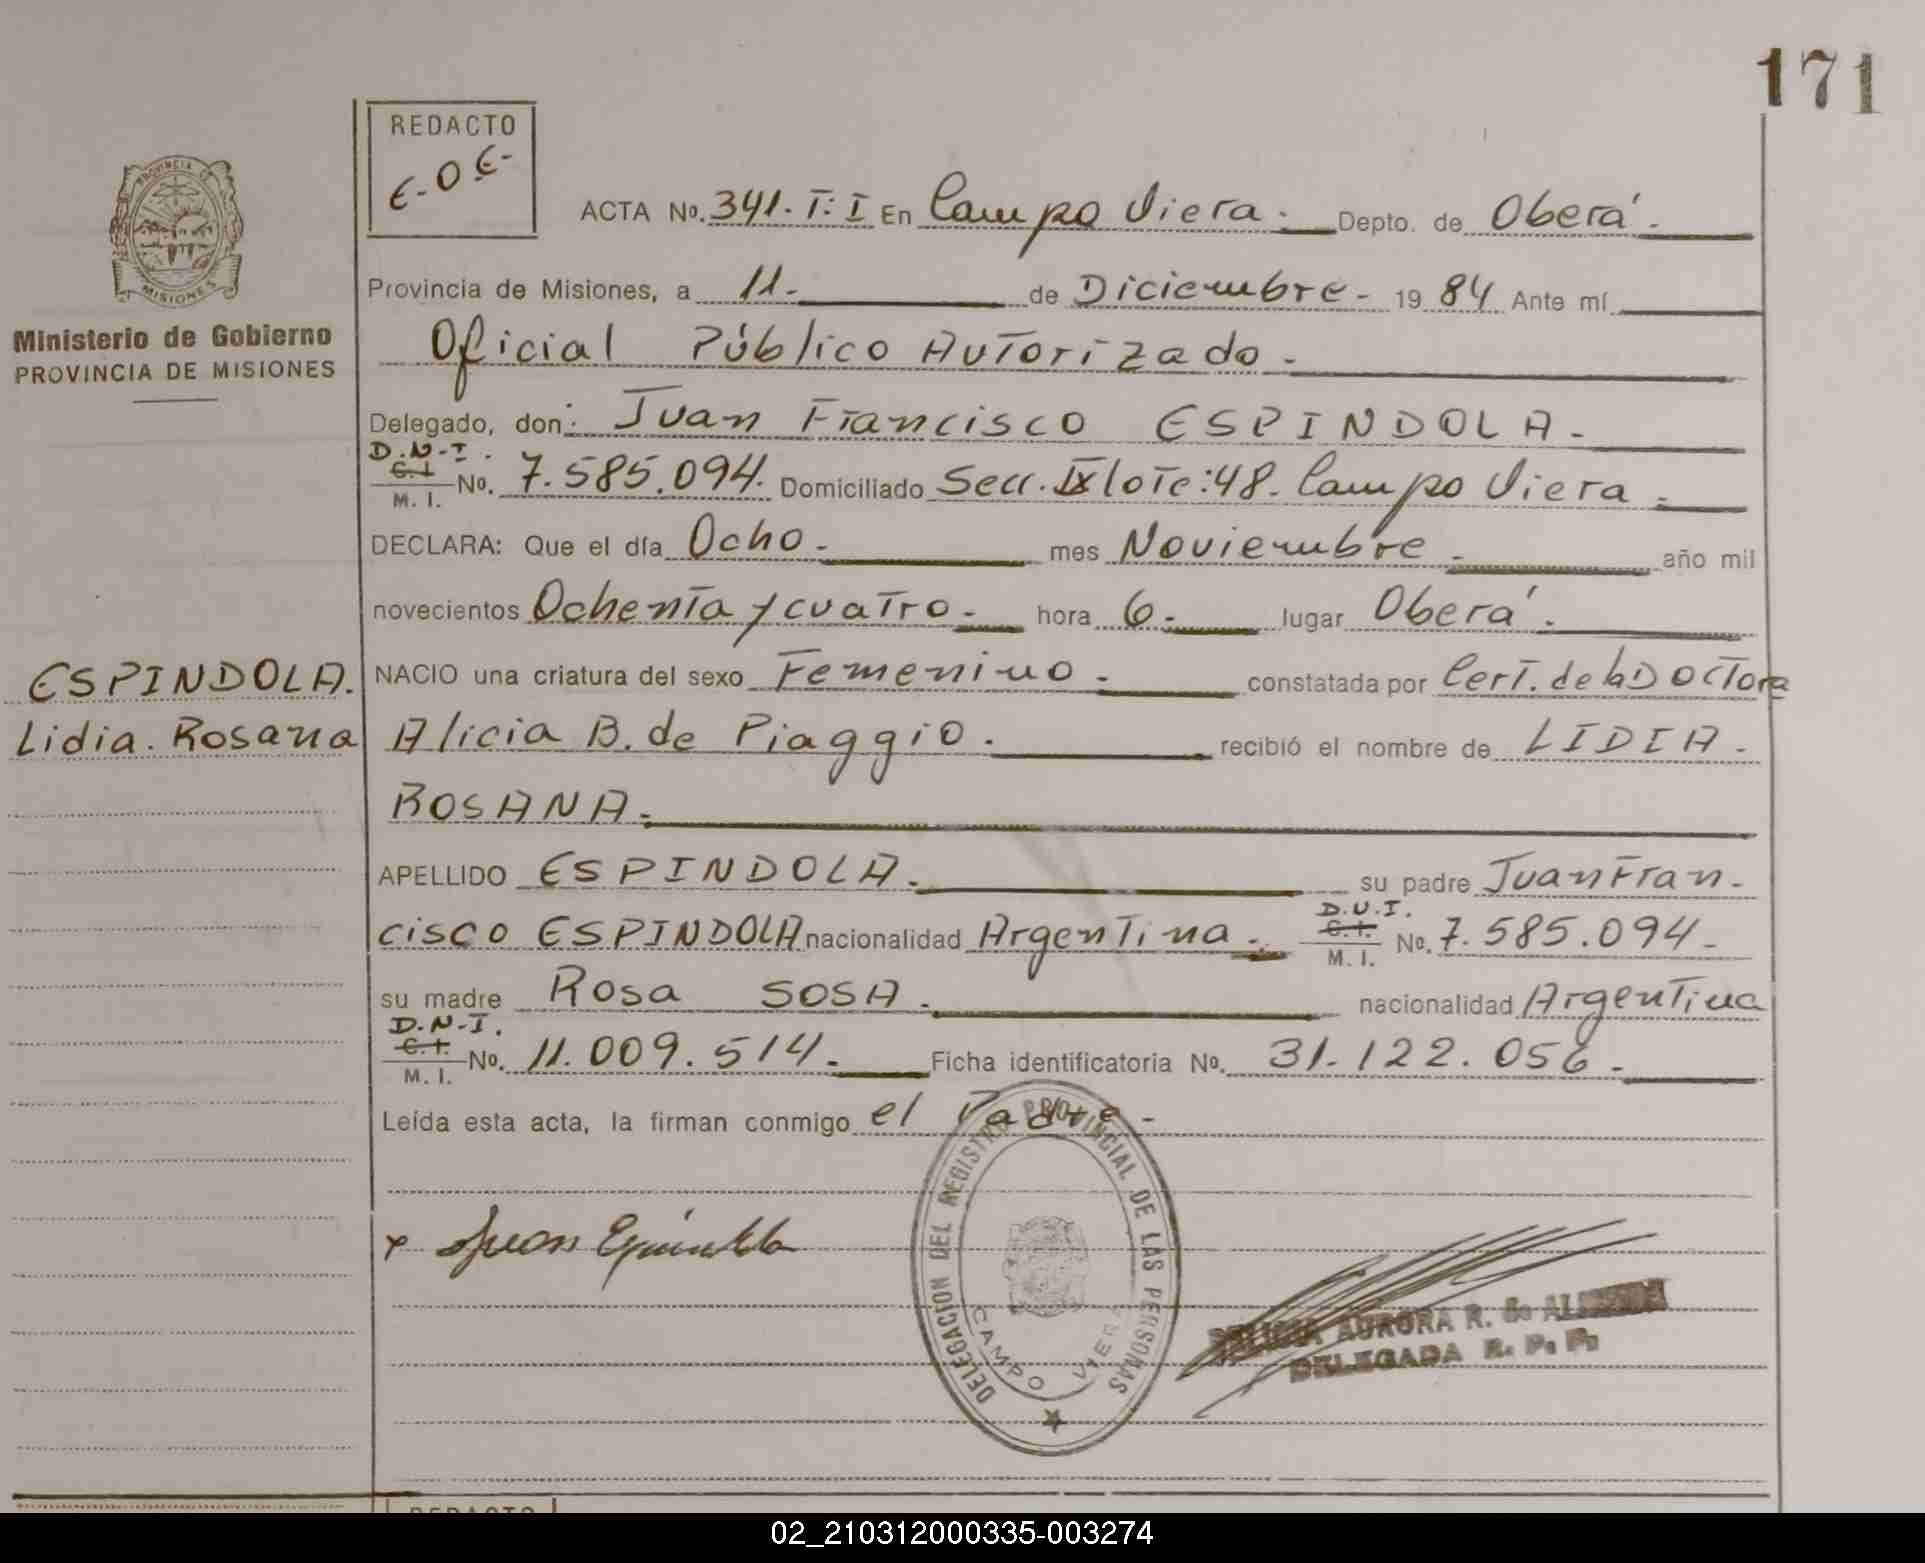 171
REDACTO
E-O E-
PROVINCIA DE
MISIONES
Ministerio de Gobierno
PROVINCIA DE MISIONES
ACTA No. 341. T: I En Campo Viera.- Depto. de Oberá.-
Provincia de Misiones, a 11.- de Diciembre.- 19 84 Ante mí
Oficial Público Autorizado.-
Delegado, don: Juan Francisco ESPINDOLA.-
D.N.I.
C.I. M. I. No. 7.585.094. Domiciliado Secc. IX lote: 48. Campo Viera.-
DECLARA: Que el día Ocho.- mes Noviembre.- año mil
novecientos Ochenta y cuatro.- hora 6.- lugar Oberá.-
ESPINDOLA. NACIO una criatura del sexo Femenino.- constatada por Cert. de la Doctora
Lidia. Rosana Alicia B. de Piaggio.- recibió el nombre de LIDIA.-
ROSANA.-
APELLIDO ESPINDOLA.- su padre Juan Fran-
cisco ESPINDOLA nacionalidad Argentina.- D.N.I. C.I. M. I. No. 7.585.094.-
su madre Rosa SOSA.- nacionalidad Argentina
D.N.I.
C.I. M. I. No. 11.009.514.- Ficha identificatoria No. 31.122.056.-
Leída esta acta, la firman conmigo el Padre.-
DELEGACION DEL REGISTRO PROVINCIAL DE LAS PERSONAS
CAMPO VIERA
x Juan Espindola
AURORA R. de
DELEGADA R. P. P.
REDACTO
02_210312000335-003274